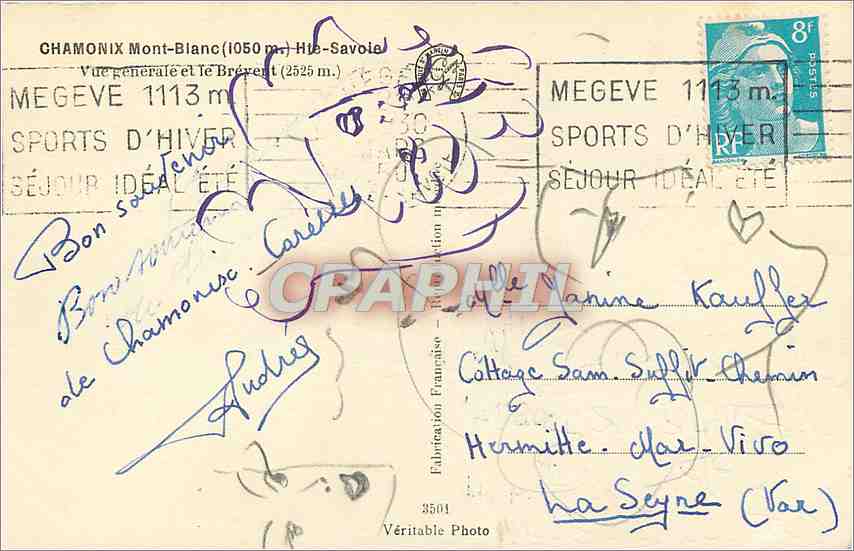 CHAMONIX Mont-Blanc (1050 m.) Hte-Savoie
Vue générale et le Brévent (2525 m.)
MEGEVE 1113 m.
SPORTS D'HIVER
SÉJOUR IDÉAL ÉTÉ
MEGEVE 1113 m.
SPORTS D'HIVER
SÉJOUR IDÉAL ÉTÉ
8F
POSTES
RF
Bon souvenir
Bon souvenir
de Chamonix. Caresses.
Andrée
CPAPHIL
Fabrication Française - Reproduction
Mlle Janine Kauffer
Cottage Sam. Suffit. Chemin
Hermitte. Mar-Vivo
La Seyne (Var)
3501
Véritable Photo